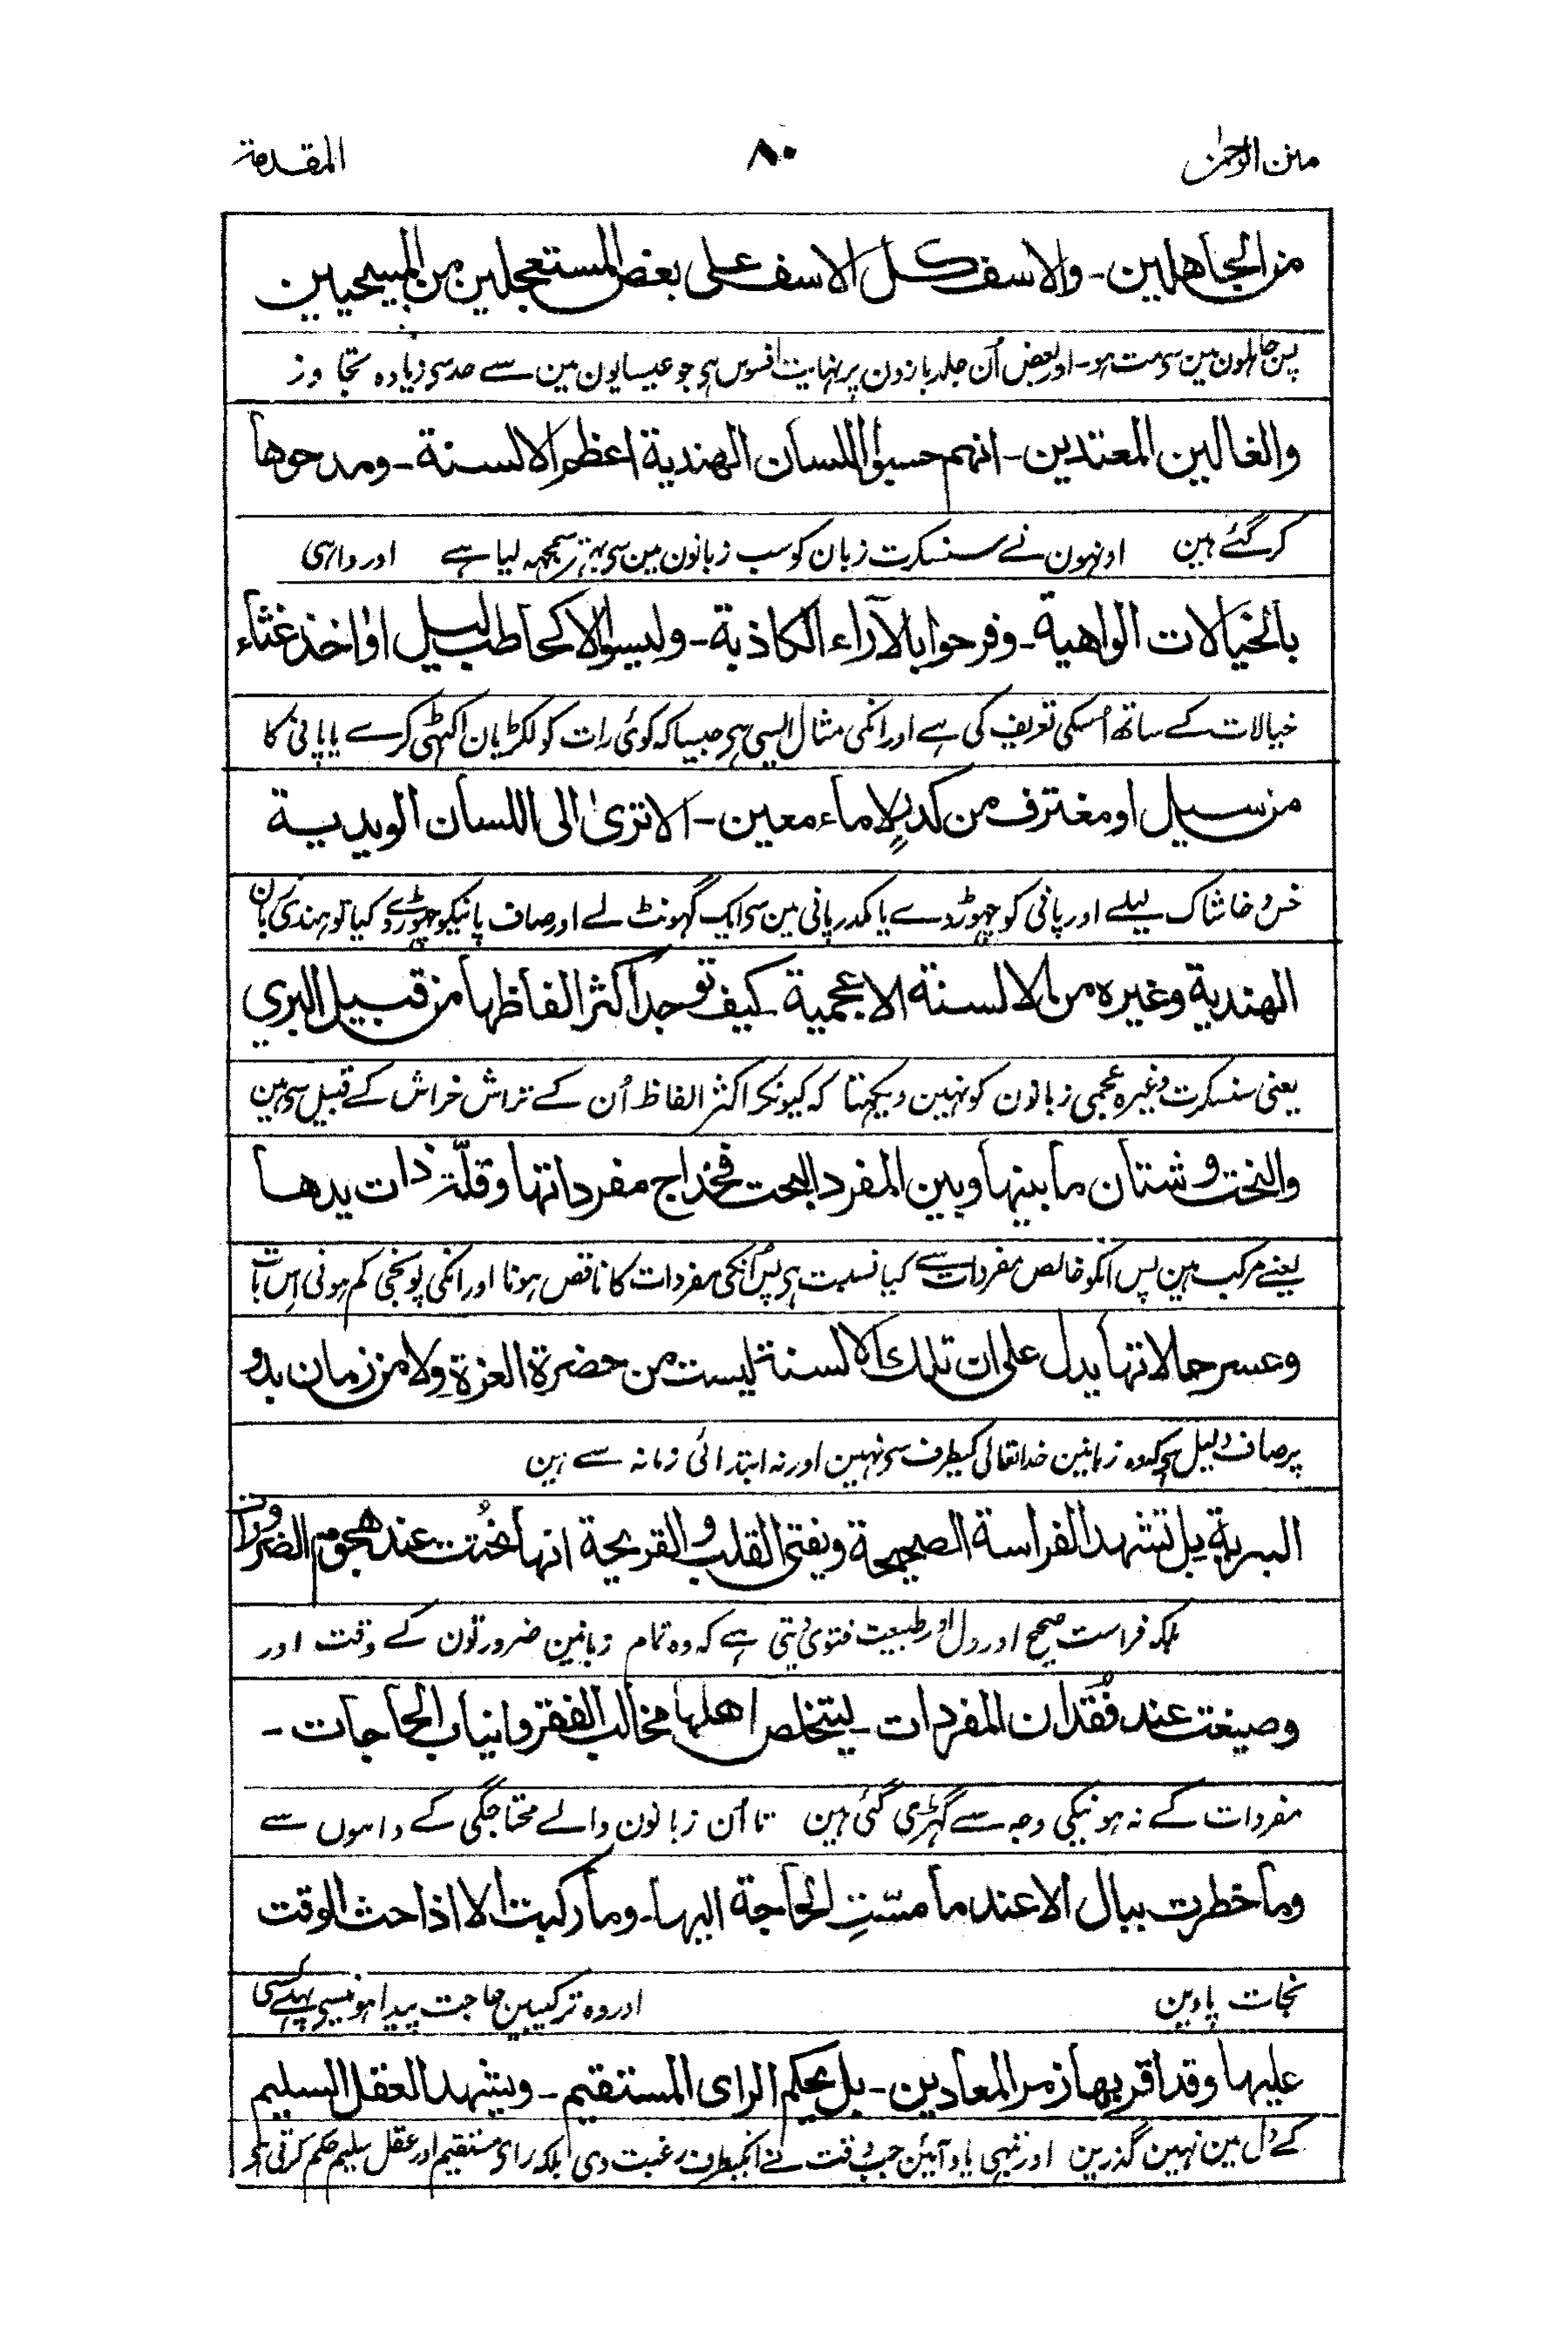 منن الرحمٰن ۸۰ المقدمة
من الجاهلين ـ والاسف كل الاسف على بعض المستعجلين من المسيحيين
پس جاہلون مین سے مت ہو ـ اور بعض اُن جلد بازون پر نہایت افسوس ہی جو عیسایون مین سے حد سی زیادہ تجاوز
والغالين المعتدين ـ انهم حسبوا اللسان الهندية اعظم الالسنة ـ ومدحوها
کر گئے ہین اونہون نے سنسکرت زبان کو سب زبانون مین سی بہتر سمجہہ لیا ہے اور واہی
بالخيالات الواهية ـ وفرحوا بالآراء الكاذبة ـ وليسوا الا كحاطب ليل او اٰخذ غثاء
خیالات کے ساتھ اُسکی تعریف کی ہے اور انکی مثال ایسی ہی جیسا کہ کوئی رات کو لکڑیان اکٹہی کرے یا پانی کا
من سيل او مغترف من كدرٍ لا ماء معين ـ الا ترىٰ الى اللسان الويدية
خس و خاشاک لیلے اور پانی کو چہوڑ دے یا مکدر پانی مین سی ایک گہونٹ لے اور صاف پانیکو چہوڑ دے کیا تو ہندی زبان
الهندية وغيره من الالسنة الاعجمية ـ كيف توجد اكثر الفاظها من قبيل البري
یعنی سنسکرت وغیرہ عجمی زبانون کو نہین دیکہتا کہ کیونکر اکثر الفاظ اُن کے تراش خراش کے قبیل سی ہین
والنحت و شتان ما بينها وبين المفرد البحت فخداج مفرداتها وقلّة ذات يدها
یعنے مرکب ہین پس انکو خالص مفردات سے کیا نسبت ہی پس اُنکی مفردات کا ناقص ہونا اور انکی پونجی کم ہونی اس بات
وعسر حالاتها يدل على ان تلك الالسنة ليست من حضرة العزة ولا من زمان بدو
پر صاف دلیل ہی کہ وہ زبانین خدا تعالی کیطرف سی نہین اور نہ ابتدائی زمانہ سے ہین
البرية بل تشهد الفراسة الصحيحة ويفتى القلب و القريحة انها نُحتت عند هجوم الضرورات
بلکہ فراست صحیح اور دل اور طبیعت فتویٰ دیتی ہے کہ وہ تمام زبانین ضرورتون کے وقت اور
وصيغت عند فُقدان المفردات ـ ليتخلص اهلها مخالب الفقر وانياب الحاجات ـ
مفردات کے نہ ہونیکی وجہ سے گہڑی گئی ہین تا اُن زبانون والے محتاجگی کے دامون سے
وما خطرت ببال الا عند ما مسّتِ الحاجة اليها ـ وما ركبت الا اذا حث الوقت
نجات پاوین اور وہ ترکیبین حاجت پیدا ہونیسی پہلے کسی
عليها وقد اقر بها زمر المعادين ـ بل يحكم الراى المستقيم ـ ويشهد العقل السليم
کے دل مین نہین گذرین اور تبہی یاد آئین جب وقت نے انکیطرف رغبت دی بلکہ رای مستقیم اور عقل سلیم حکم کرتی ہی